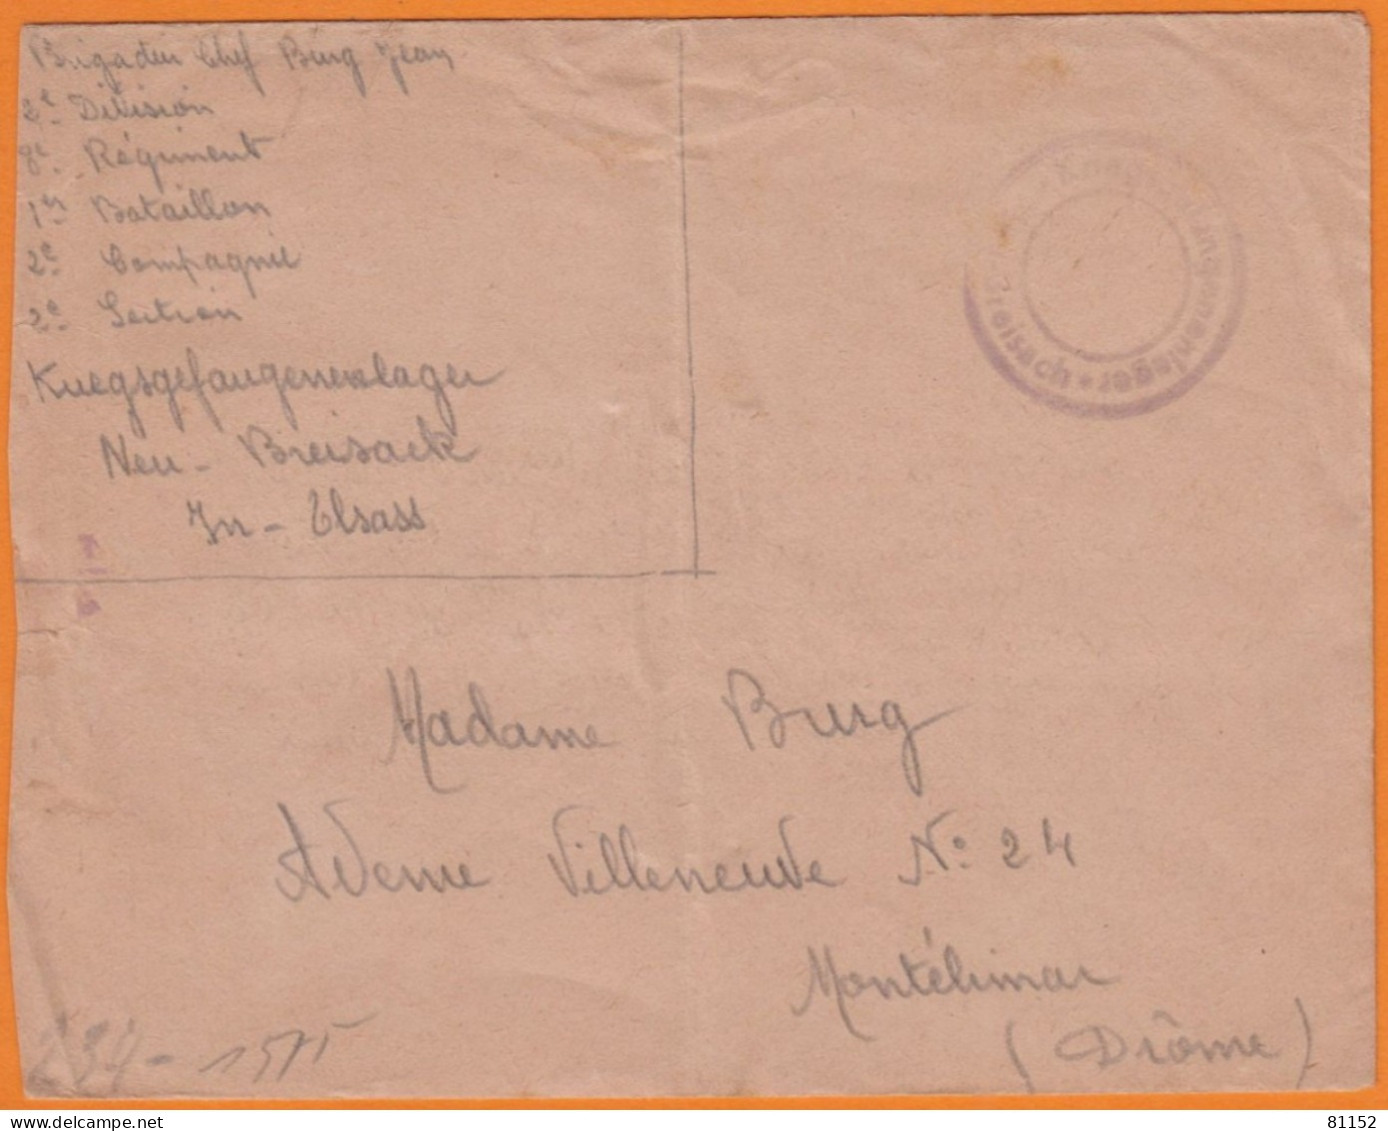 Brigadier Chef Burg Jean
2e Division
8e Régiment
1er Bataillon
2e Compagnie
2e Section
Kriegsgefangenenlager
Neu-Breisack
In-Elsass
Kriegsgefangenenlager • Breisach
Madame Burg
Avenue Villeneuve No 24
Montélimar
(Drôme)
81152